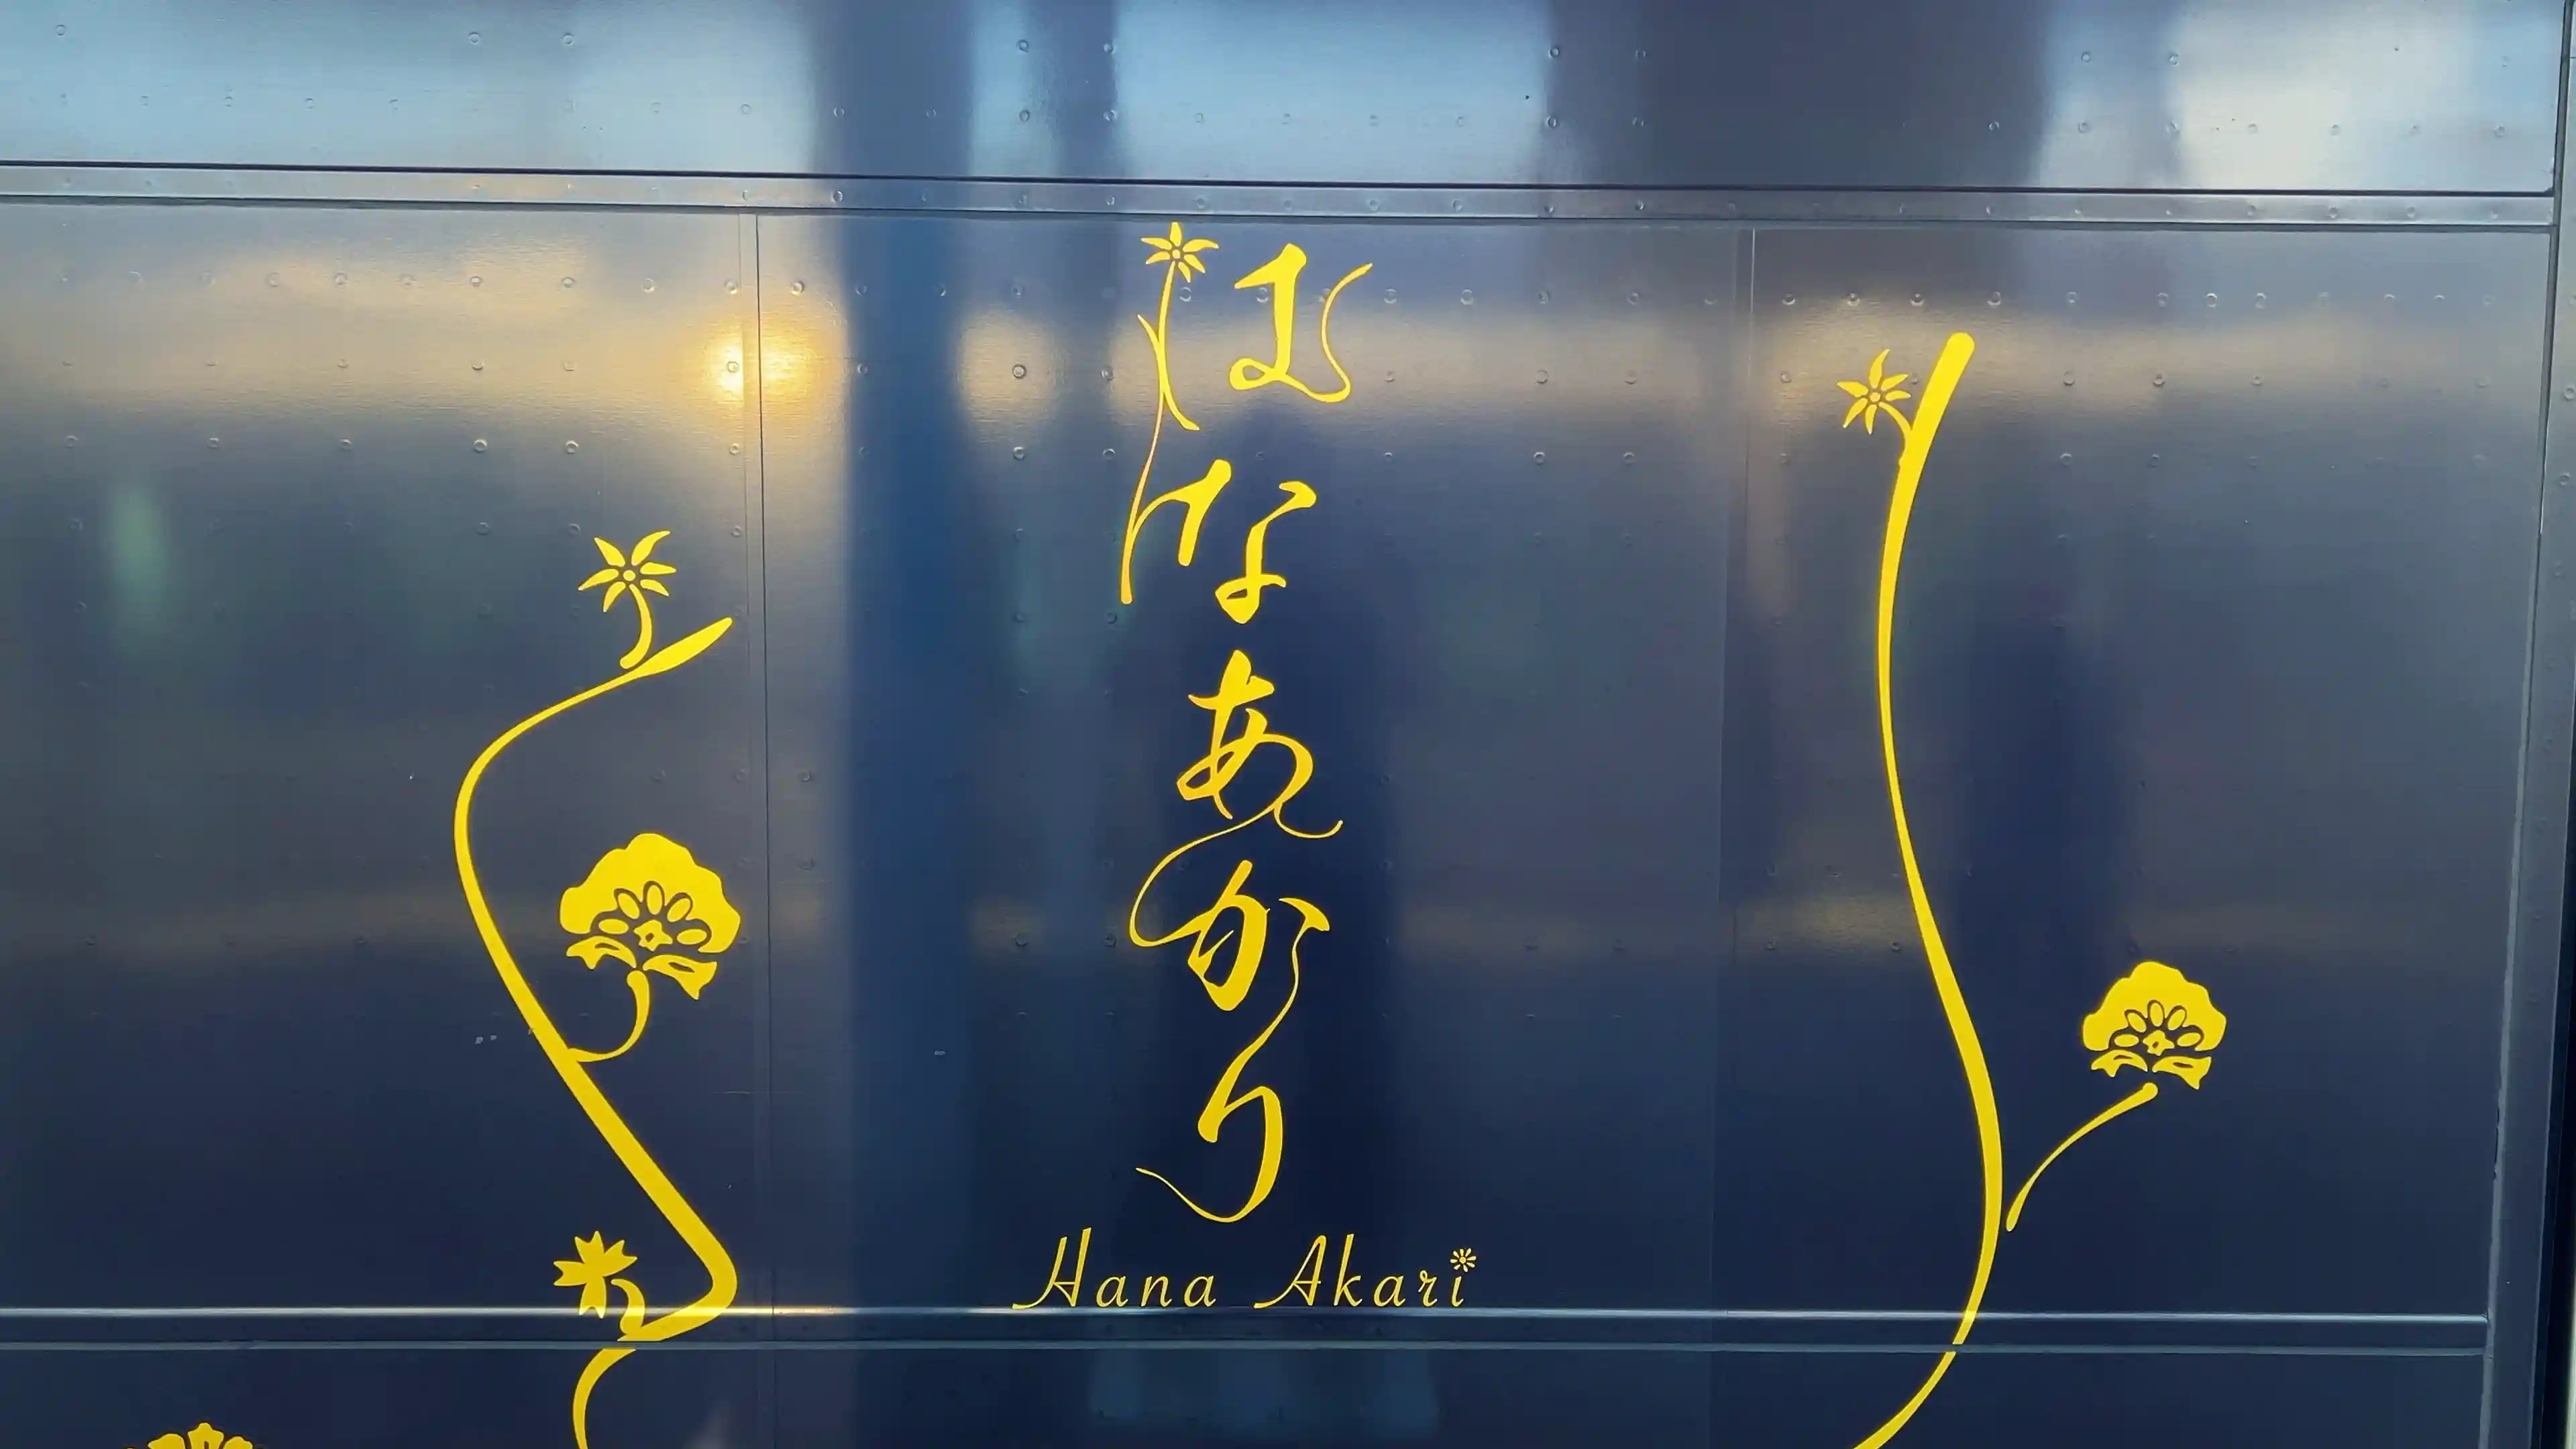 はなあかり
Hana Akari